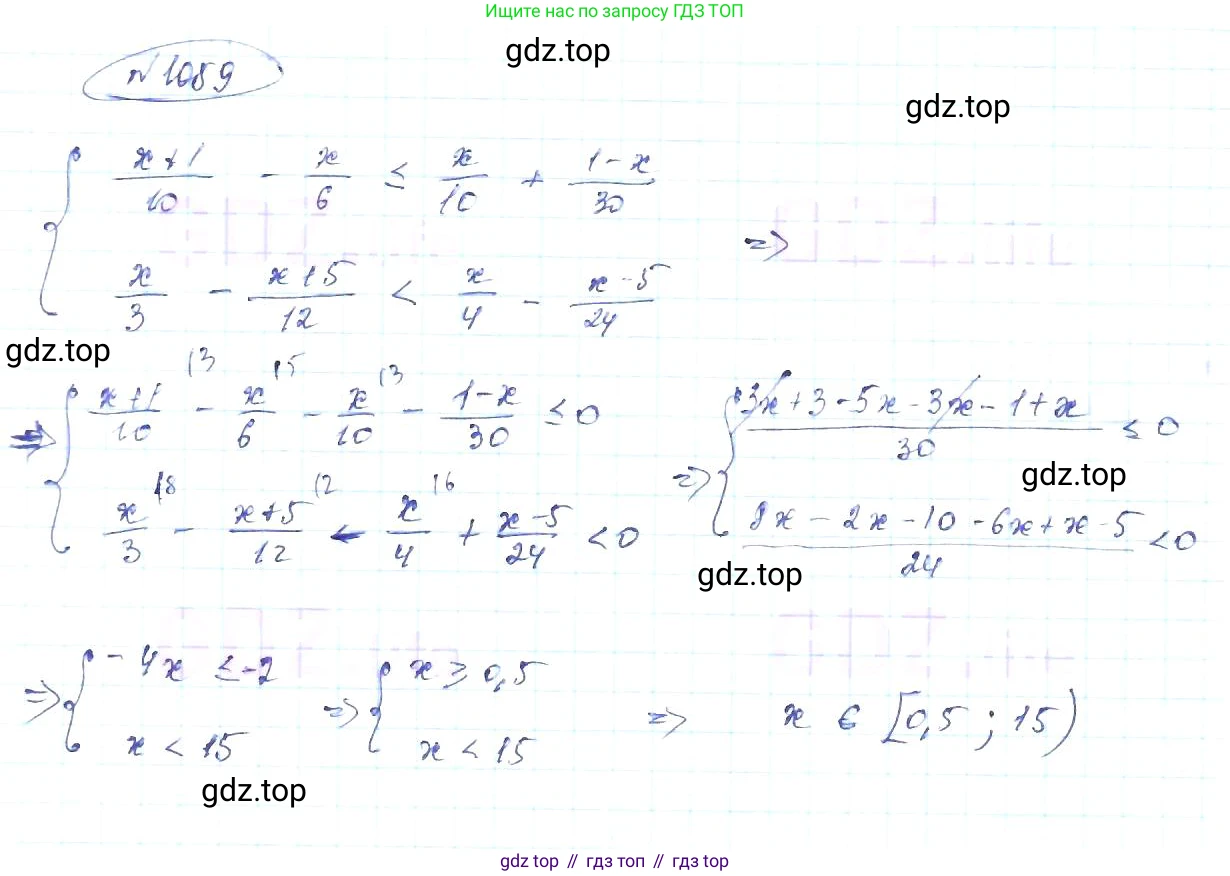 Ищите нас по запросу ГДЗ ТОП
gdz.top
№1059
gdz.top
{ (x+1)/10 - x/6 ≤ x/10 + (1-x)/30
{ x/3 - (x+5)/12 < x/4 - (x-5)/24 =>
gdz.top
=> { (x+1)/10 (3 - x/6 (5 - x/10 (3 - (1-x)/30 ≤ 0
{ x/3 (8 - (x+5)/12 (2 - x/4 (6 + (x-5)/24 < 0
=> { (3x+3-5x-3x-1+x)/30 ≤ 0
gdz.top
{ (8x-2x-10-6x+x-5)/24 < 0
gdz.top
=> { -4x ≤ -2
{ x < 15
=> { x ≥ 0,5
{ x < 15
=> x ∈ [0,5; 15)
gdz.top
gdz top // гдз топ // гдз top